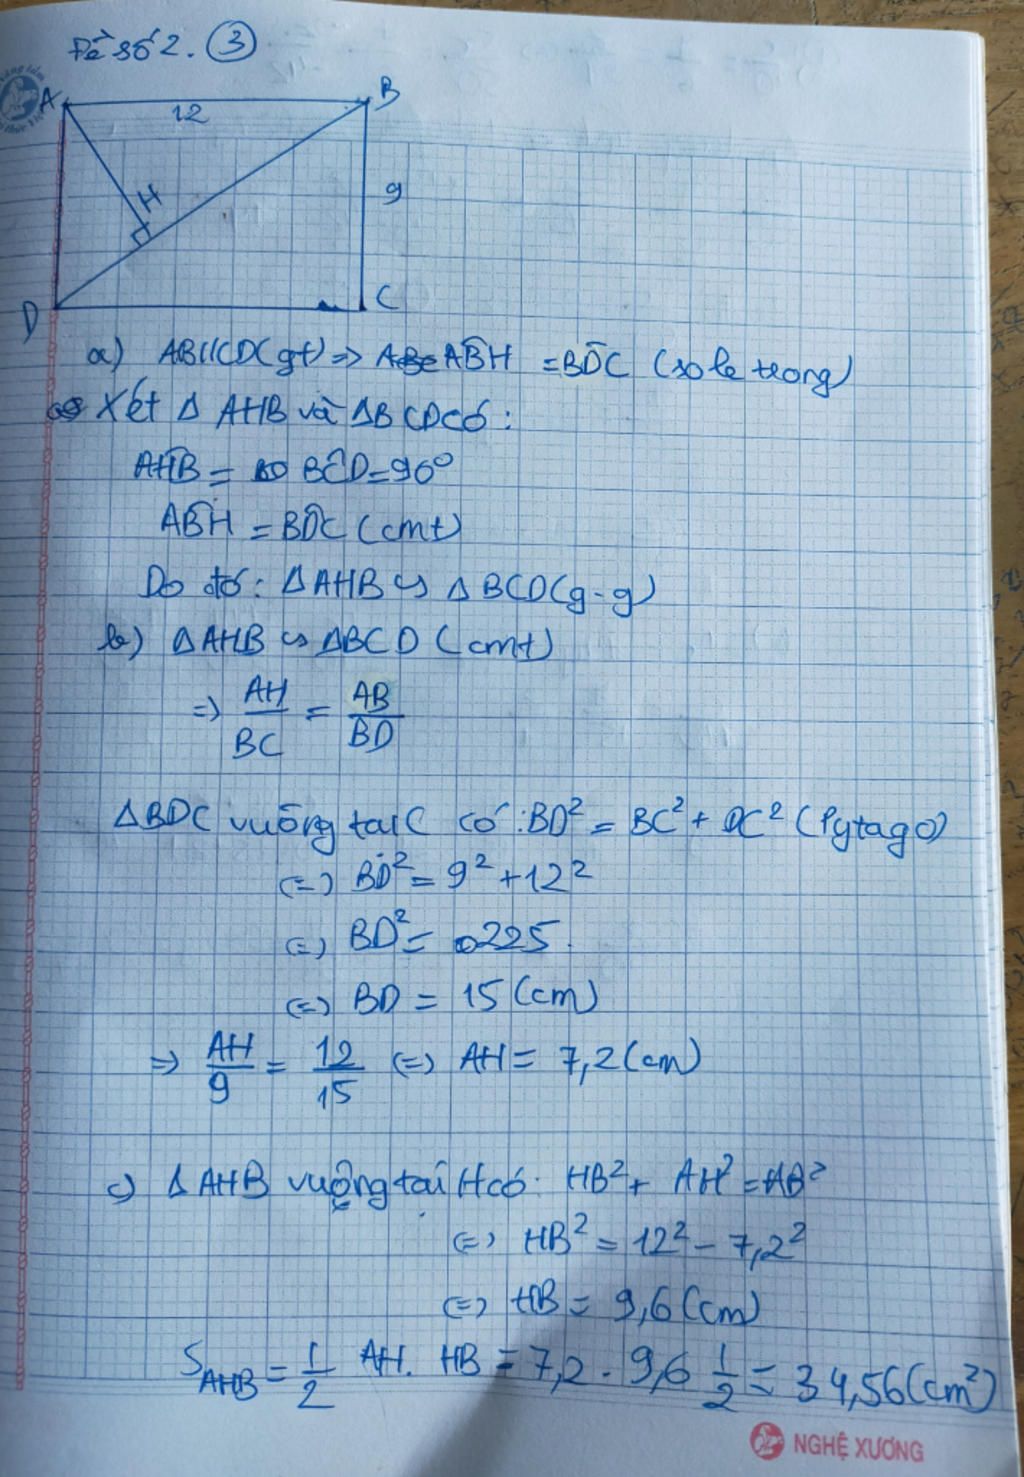 Đề số 2. ③
A
B
12
H
9
D
C
a) AB//CD (gt) => ABH = BDC (so le trong)
Xét Δ AHB và ΔBCD có:
AHB = BCD = 90°
ABH = BDC (cmt)
Do đó: ΔAHB ∽ ΔBCD (g-g)
b) ΔAHB ∽ ΔBCD (cmt)
=> AH/BC = AB/BD
ΔBDC vuông tại C có: BD² = BC² + DC² (Pytago)
(=) BD² = 9² + 12²
(=) BD² = 225.
(=) BD = 15 (cm)
=> AH/9 = 12/15 (=) AH = 7,2 (cm)
c) Δ AHB vuông tại H có: HB² + AH² = AB²
(=) HB² = 12² - 7,2²
(=) HB = 9,6 (cm)
S AHB = 1/2 AH. HB = 7,2 . 9,6 1/2 = 34,56 (cm²)
NGHỆ XƯƠNG